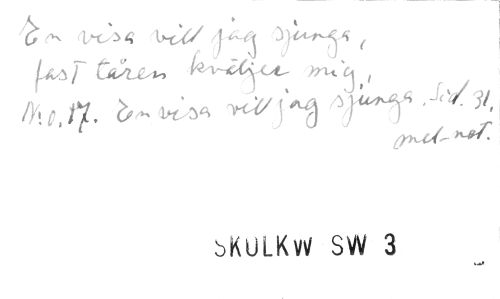 En visa vill jag sjunga,
fast tåren kväljer mig,
No. 17. En visa vill jag sjunga. Sid. 31.
mel-not.
SKULKW SW 3